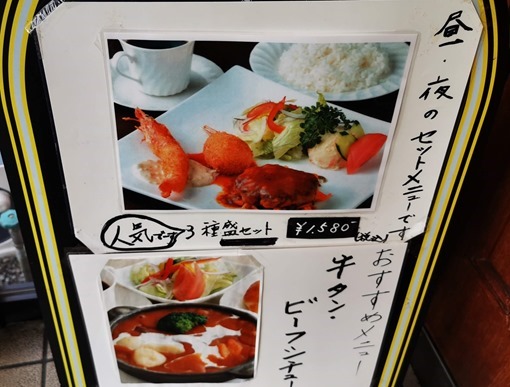 昼・夜のセットメニューです
人気です 3種盛セット ¥1,580-(税込)
おすすめメニュー
牛タン・
ビーフシチュー